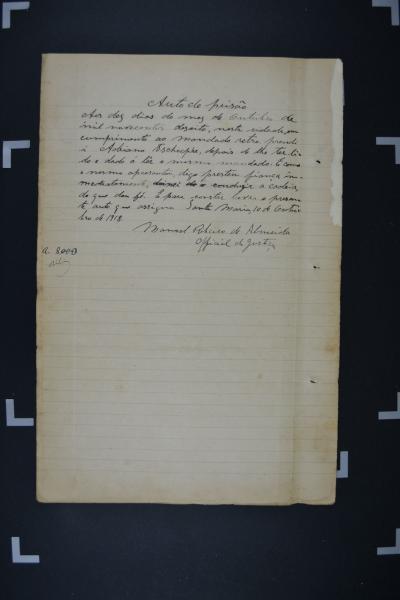 Auto de prisão
Aos dez dias do mez de Outubro de
mil novecentos dezoito, nesta cidade, em
cumprimento ao mandado retro, prendi
a Adriano Tscheppe, depois de lhe ter li-
do e dado á lêr o mesmo mandado. E como
o mesmo apresentou, digo prestou fiança im-
mediatamente, deixei de o conduzir a cadeia
do que dou fé. E para constar lavro o presen-
te auto que assigno. Santa Maria, 10 de Outu-
bro de 1918.
Manoel Ribeiro de Almeida
Official de Justiça
a. 8000